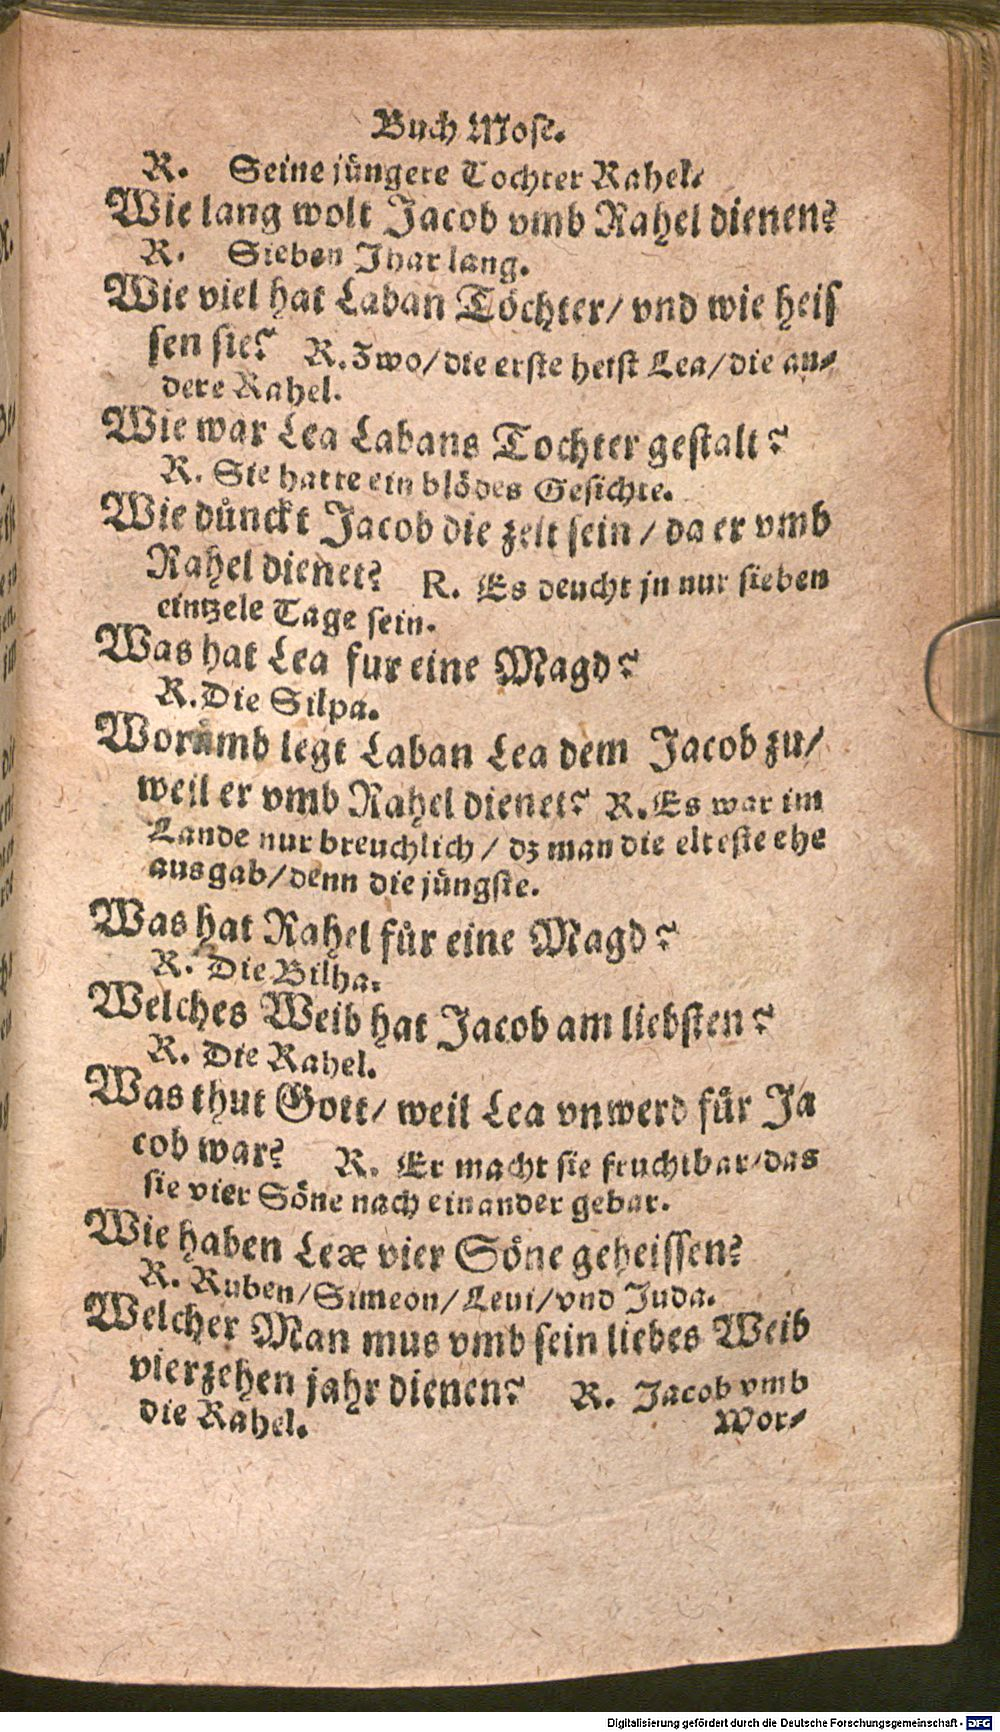 Buch Mose.
R. Seine jüngere Tochter Rahel.
Wie lang wolt Jacob vmb Rahel dienen?
R. Sieben Jhar lang.
Wie viel hat Laban Töchter/ vnd wie heis
sen sie? R. Zwo/ die erste heist Lea/ die an-
dere Rahel.
Wie war Lea Labans Tochter gestalt?
R. Sie hatte ein blödes Gesichte.
Wie dünckt Jacob die zeit sein/ da er vmb
Rahel dienet? R. Es deucht jn nur sieben
eintzele Tage sein.
Was hat Lea fur eine Magd?
R. Die Silpa.
Worumb legt Laban Lea dem Jacob zu/
weil er vmb Rahel dienet? R. Es war im
Lande nur breuchlich/ dz man die elteste ehe
ausgab/ denn die jüngste.
Was hat Rahel für eine Magd?
R. Die Bilha.
Welches Weib hat Jacob am liebsten?
R. Die Rahel.
Was thut Gott/ weil Lea vnwerd für Ja
cob war? R. Er macht sie fruchtbar/ das
sie vier Söne nach einander gebar.
Wie haben Leæ vier Söne geheissen?
R. Ruben/ Simeon/ Leui/ vnd Juda.
Welcher Man mus vmb sein liebes Weib
vierzehen jahr dienen? R. Jacob vmb
die Rahel.
Wor-
Digitalisierung gefördert durch die Deutsche Forschungsgemeinschaft - DFG